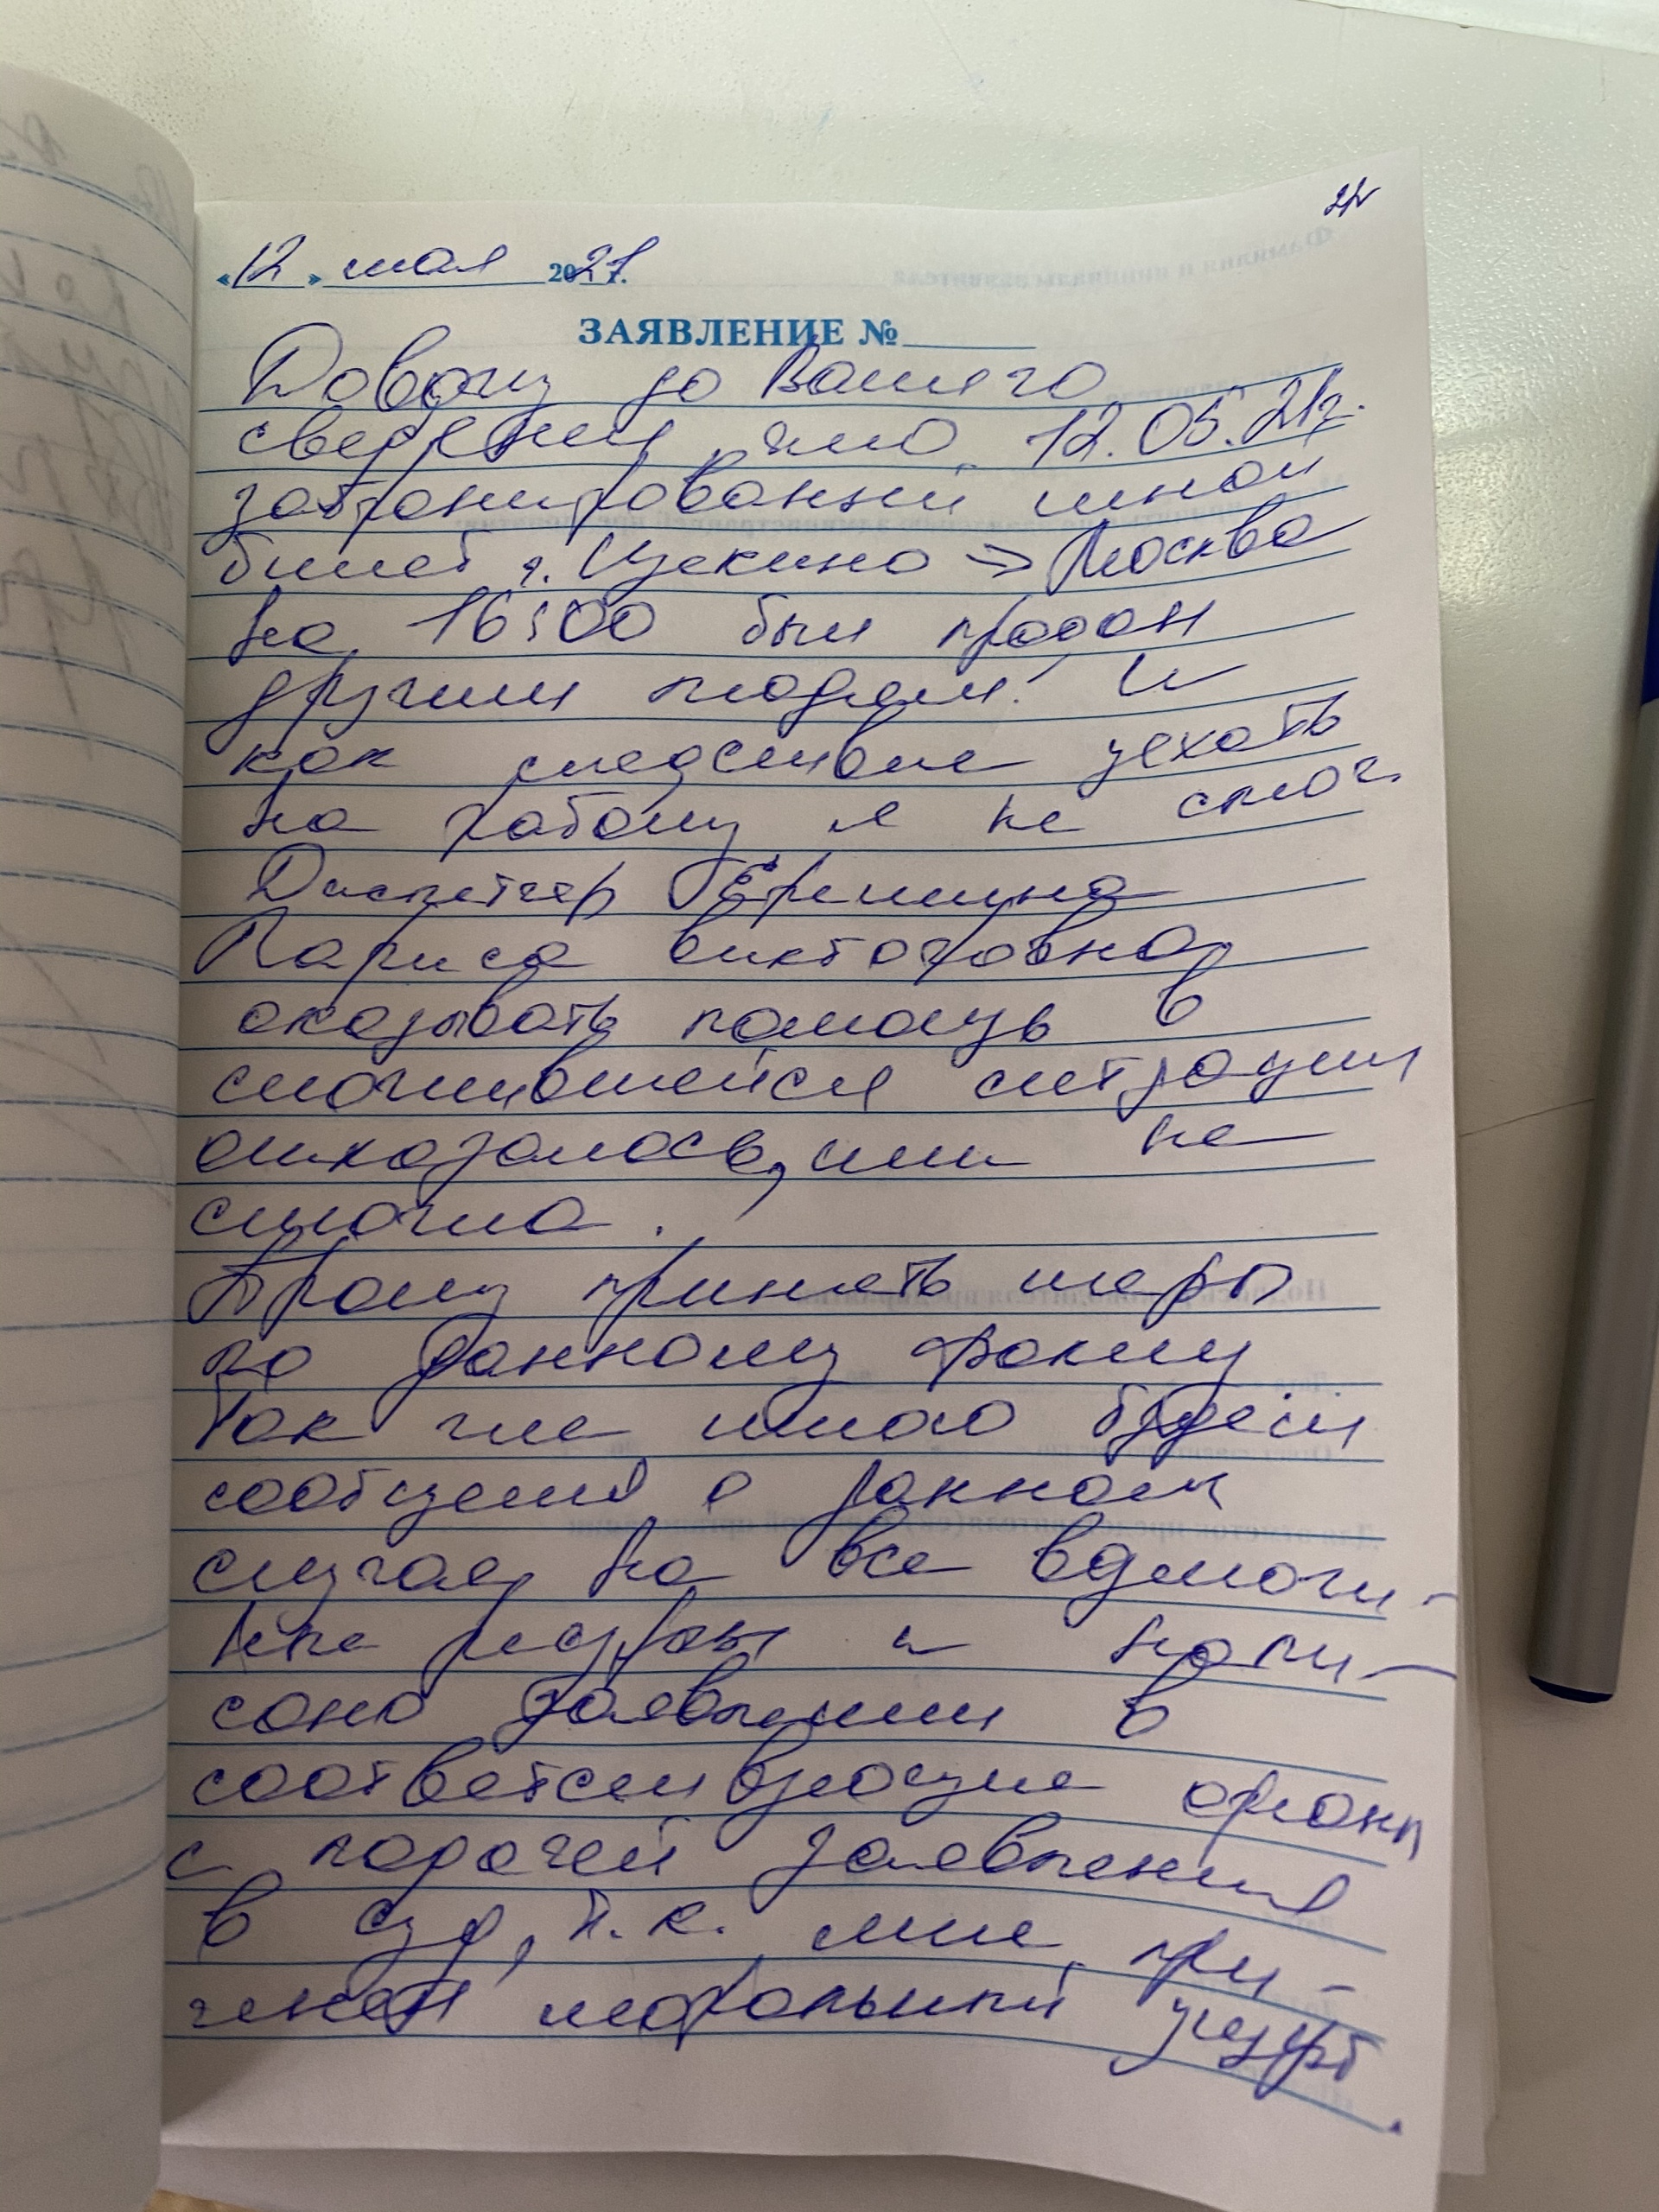 «12» мая 2021г.
ЗАЯВЛЕНИЕ №
Довожу до Вашего
сведения, что 12.05.21г.
забронированный мной
билет г. Щекино => Москва
на 16:00 был продан
другим людям. И
как следствие уехать
на работу я не смог.
Диспетчер Ерёмина
Лариса Викторовна,
оказывать помощь в
сложившейся ситуации
отказалась, или не
смогла.
Прошу принять меры
по данному факту
Так же мною будет
сообщено о данном
случае, на все
ресурсы и напи-
сано заявлении в
соответствующие органы
с подачей заявления
в суд, т.к. мне при-
чинен моральный ущерб.